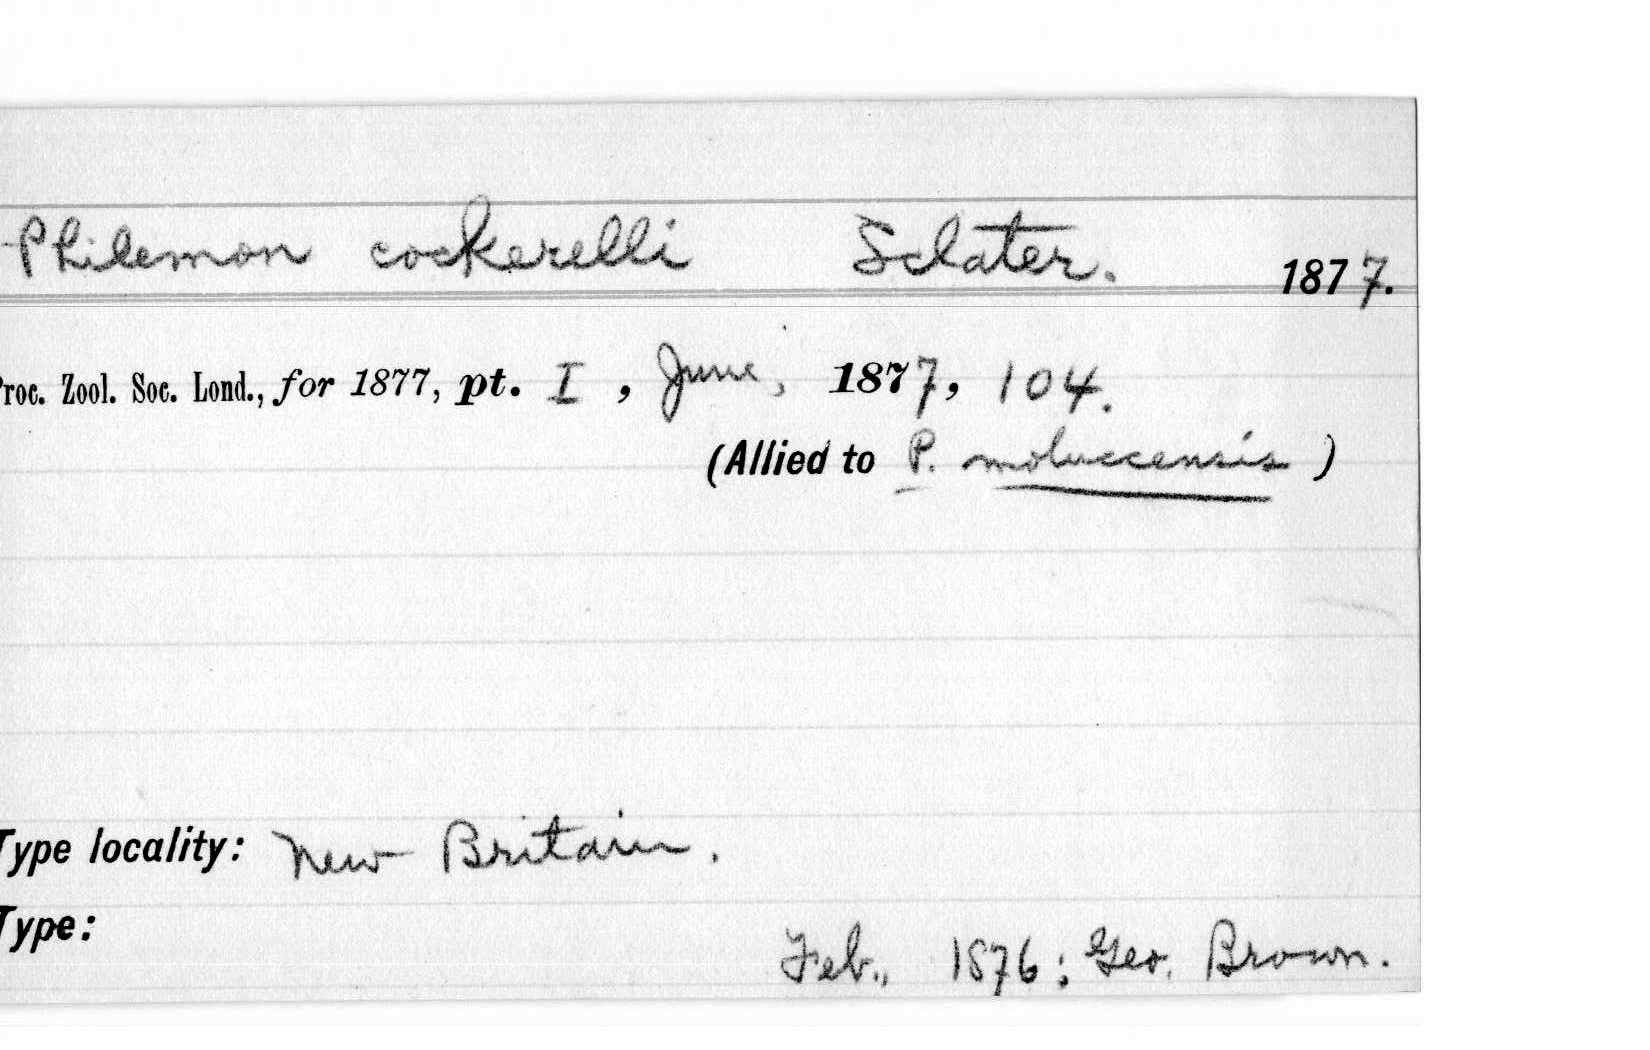 Philemon cockerelli Sclater. 1877.
Proc. Zool. Soc. Lond., for 1877, pt. I, June, 1877, 104.
(Allied to P. moluccensis)
Type locality: New Britain.
Type:
Feb., 1876; Geo. Brown.